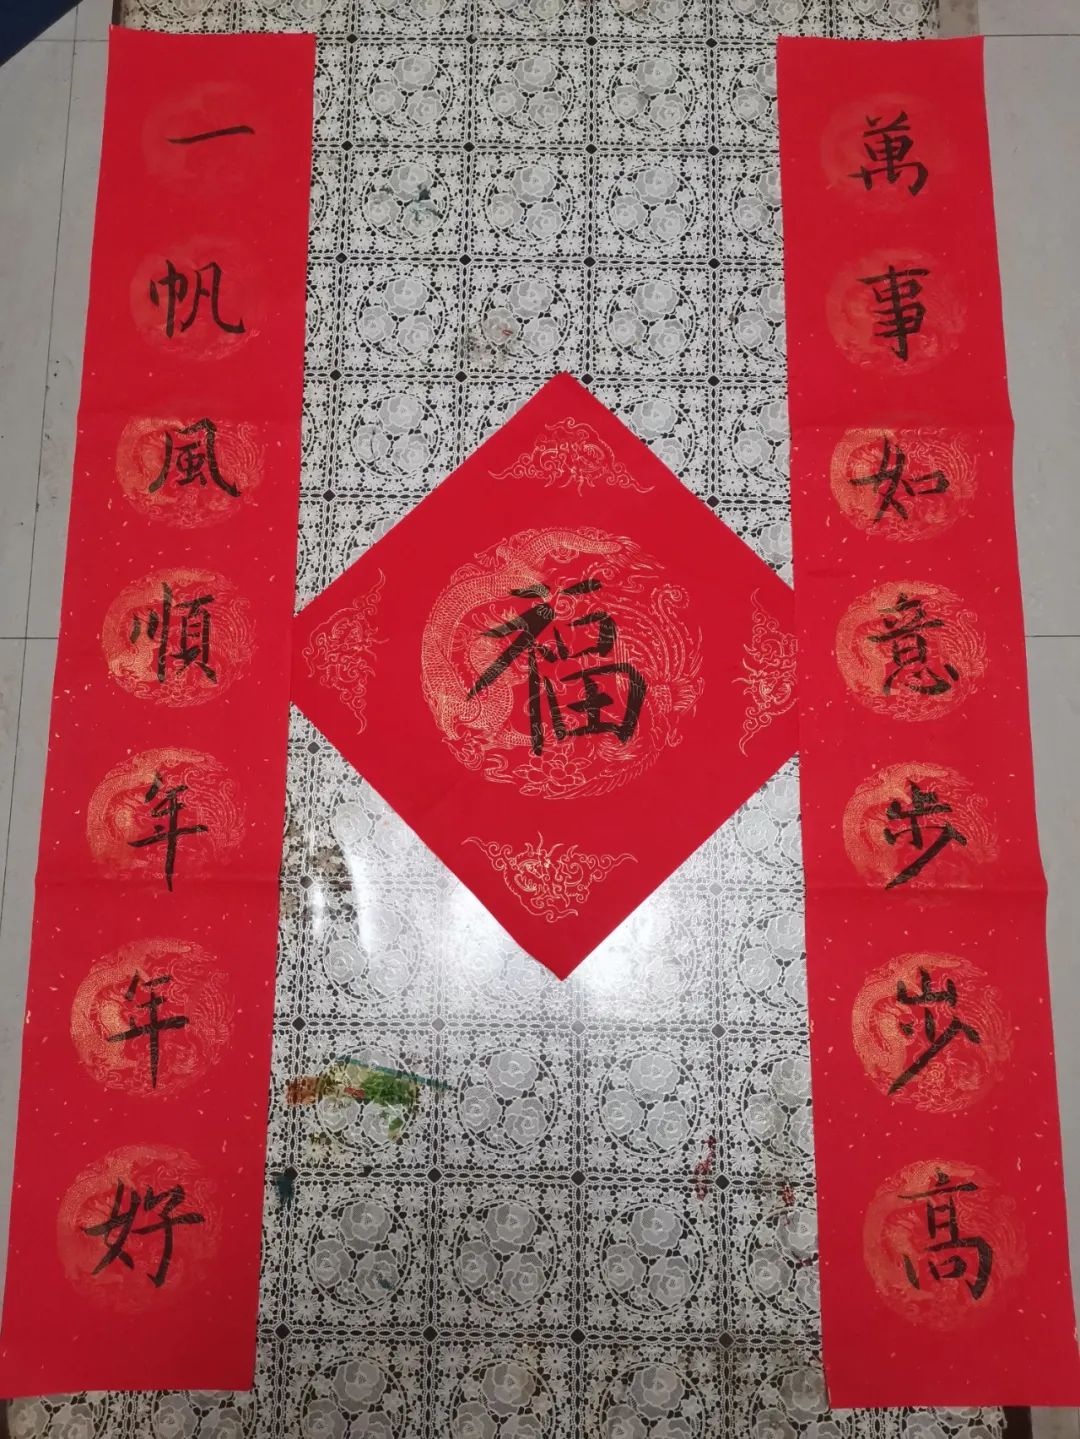 一帆風順年年好
萬事如意步步高
福